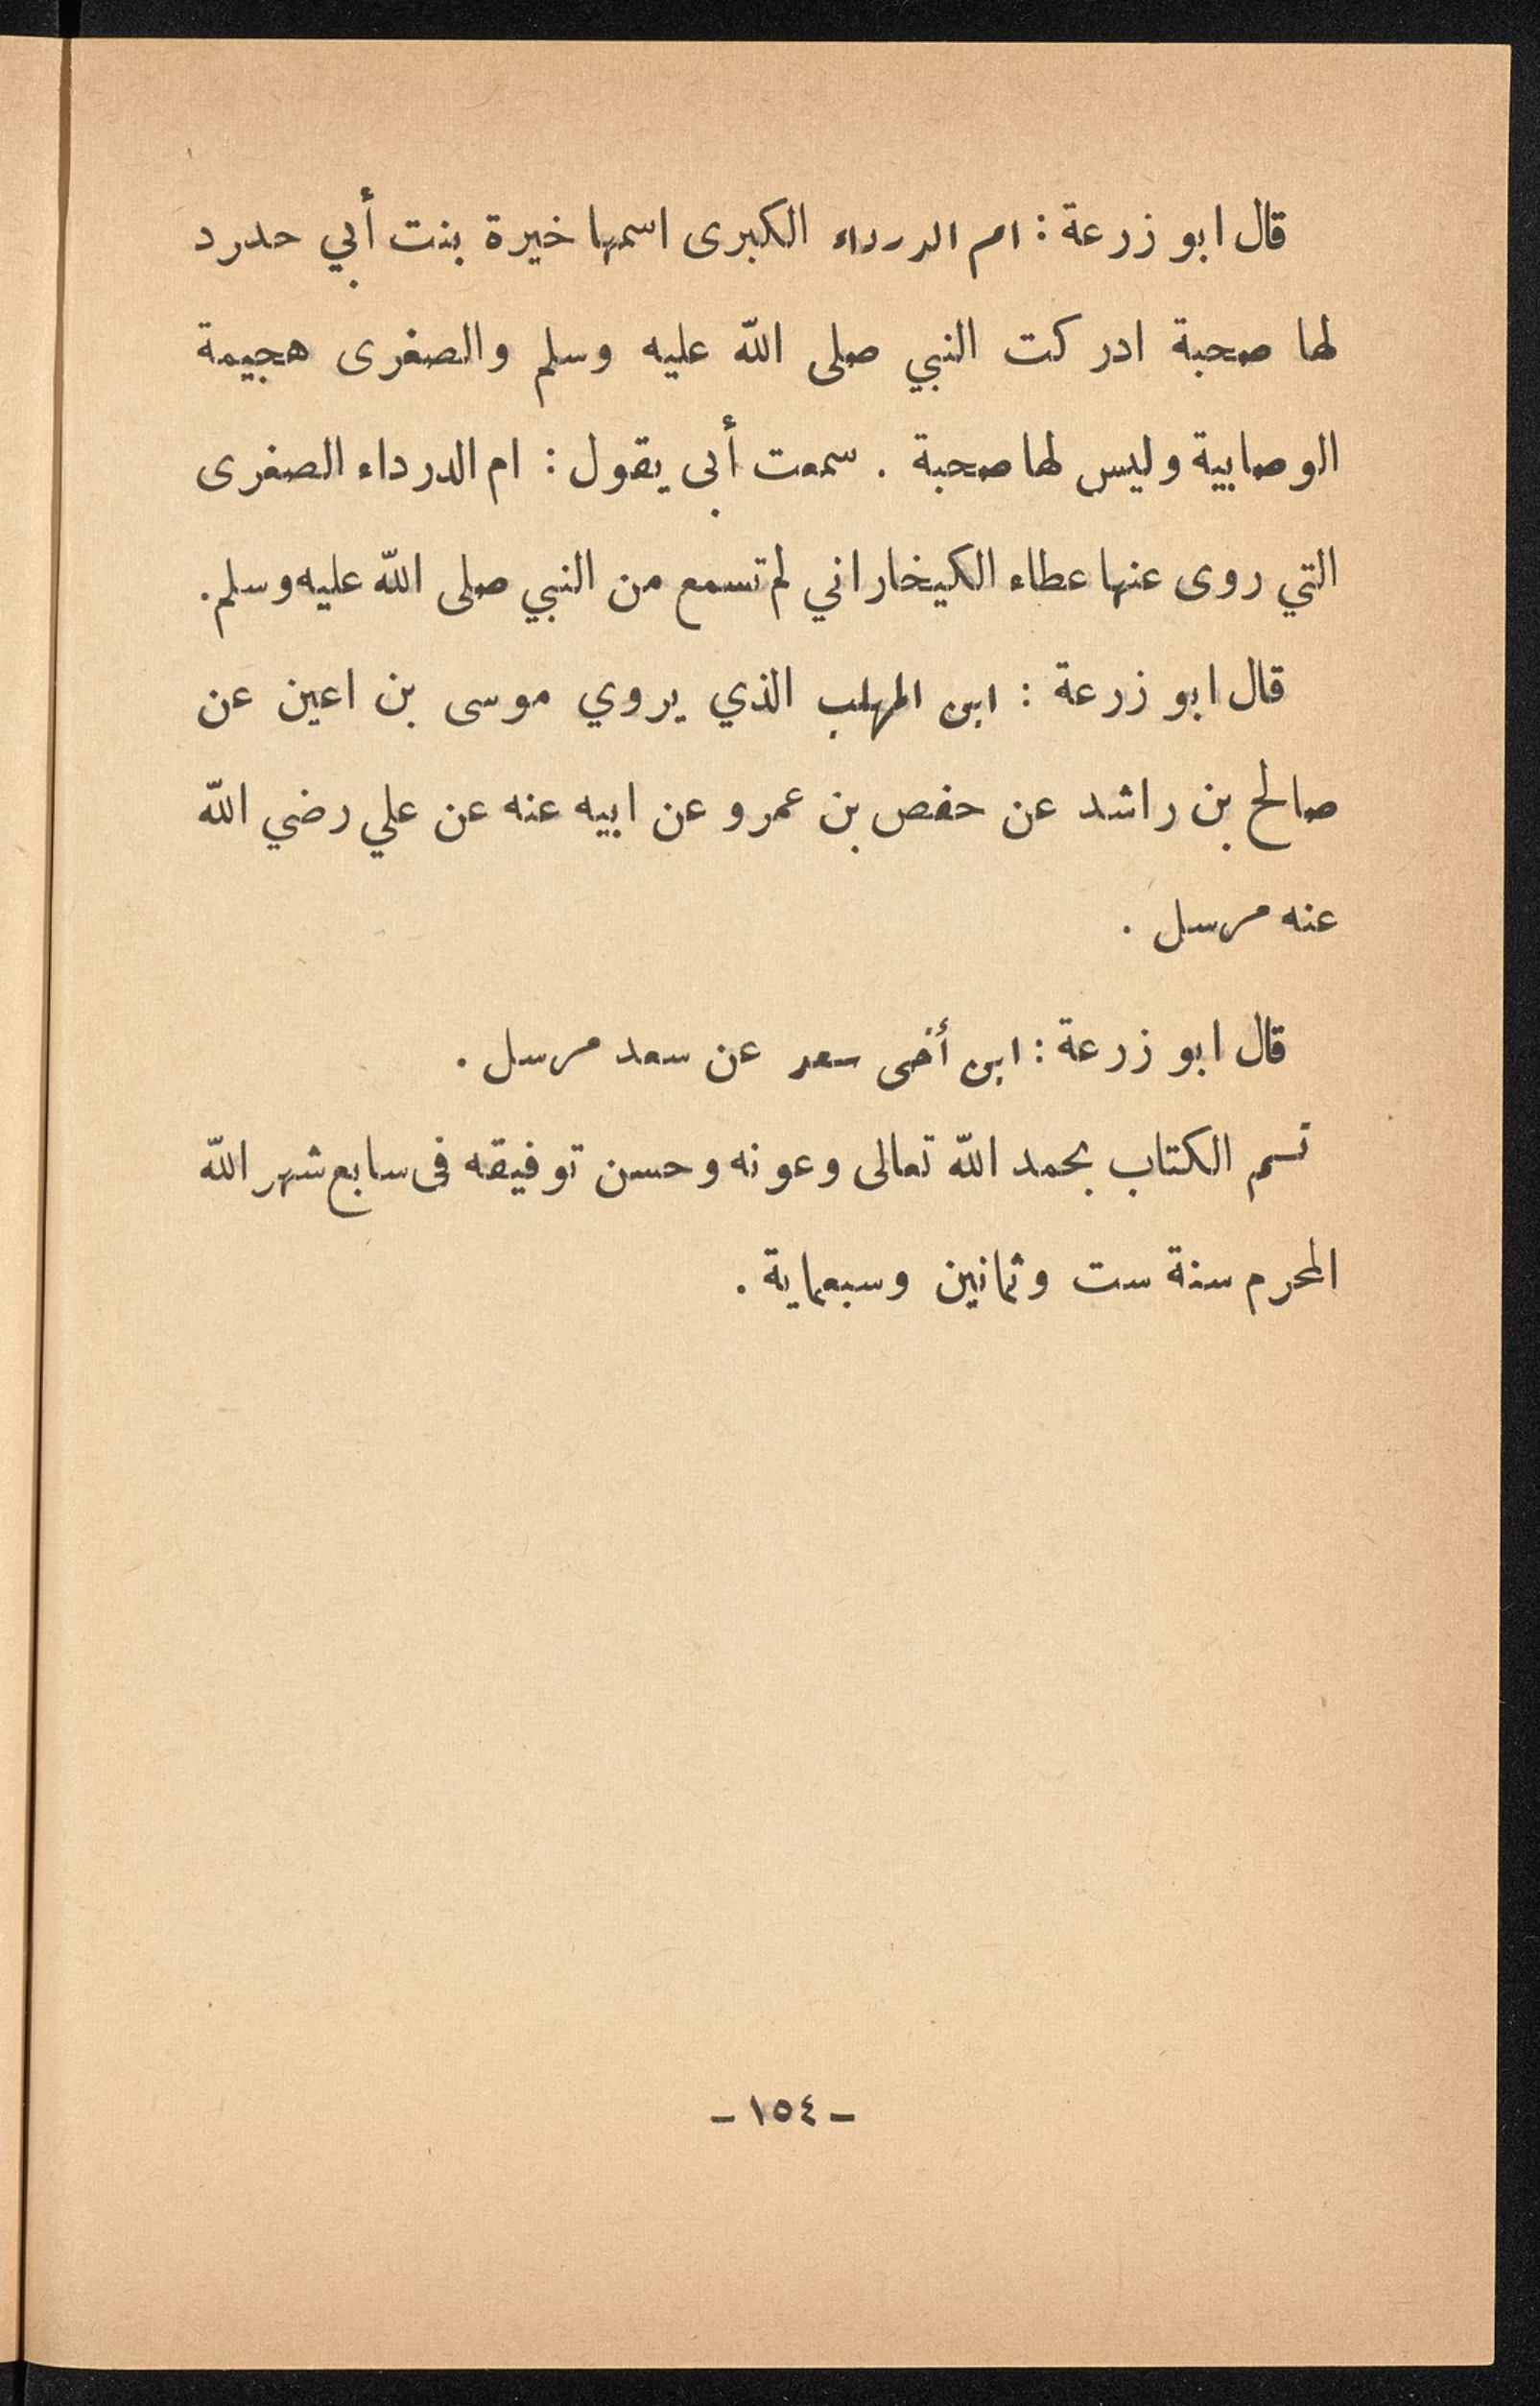 قال ابو زرعة : ام الدرداء الكبرى اسمها خيرة بنت أبي حدرد
لها صحبة ادركت النبي صلى الله عليه وسلم والصغرى هجيمة
الوصابية وليس لها صحبة . سمعت أبي يقول : ام الدرداء الصغرى
التي روى عنها عطاء الكيخاراني لم تسمع من النبي صلى الله عليه وسلم .
قال ابو زرعة : ابن المهلب الذي يروي موسى بن اعين عن
صالح بن راشد عن حفص بن عمرو عن ابيه عنه عن علي رضي الله
عنه مرسل .
قال ابو زرعة : ابن أخى سعد عن سعد مرسل .
تم الكتاب بحمد الله تعالى وعونه وحسن توفيقه فى سابع شهر الله
المحرم سنة ست وثمانين وسبعماية .
- ١٥٤ -